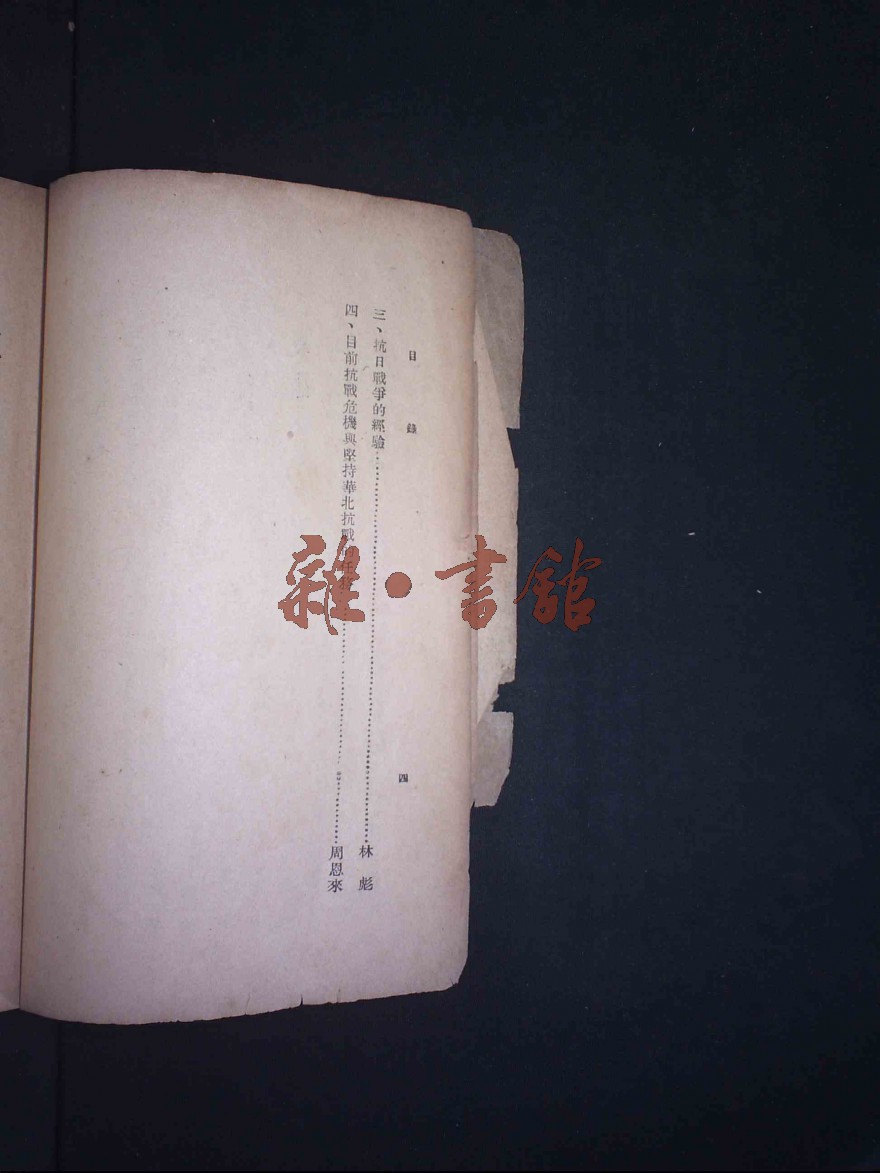 目錄
四
三、抗日戰爭的經驗……林彪
四、目前抗戰危機與堅持華北抗戰的任務……周恩來
雜·書館